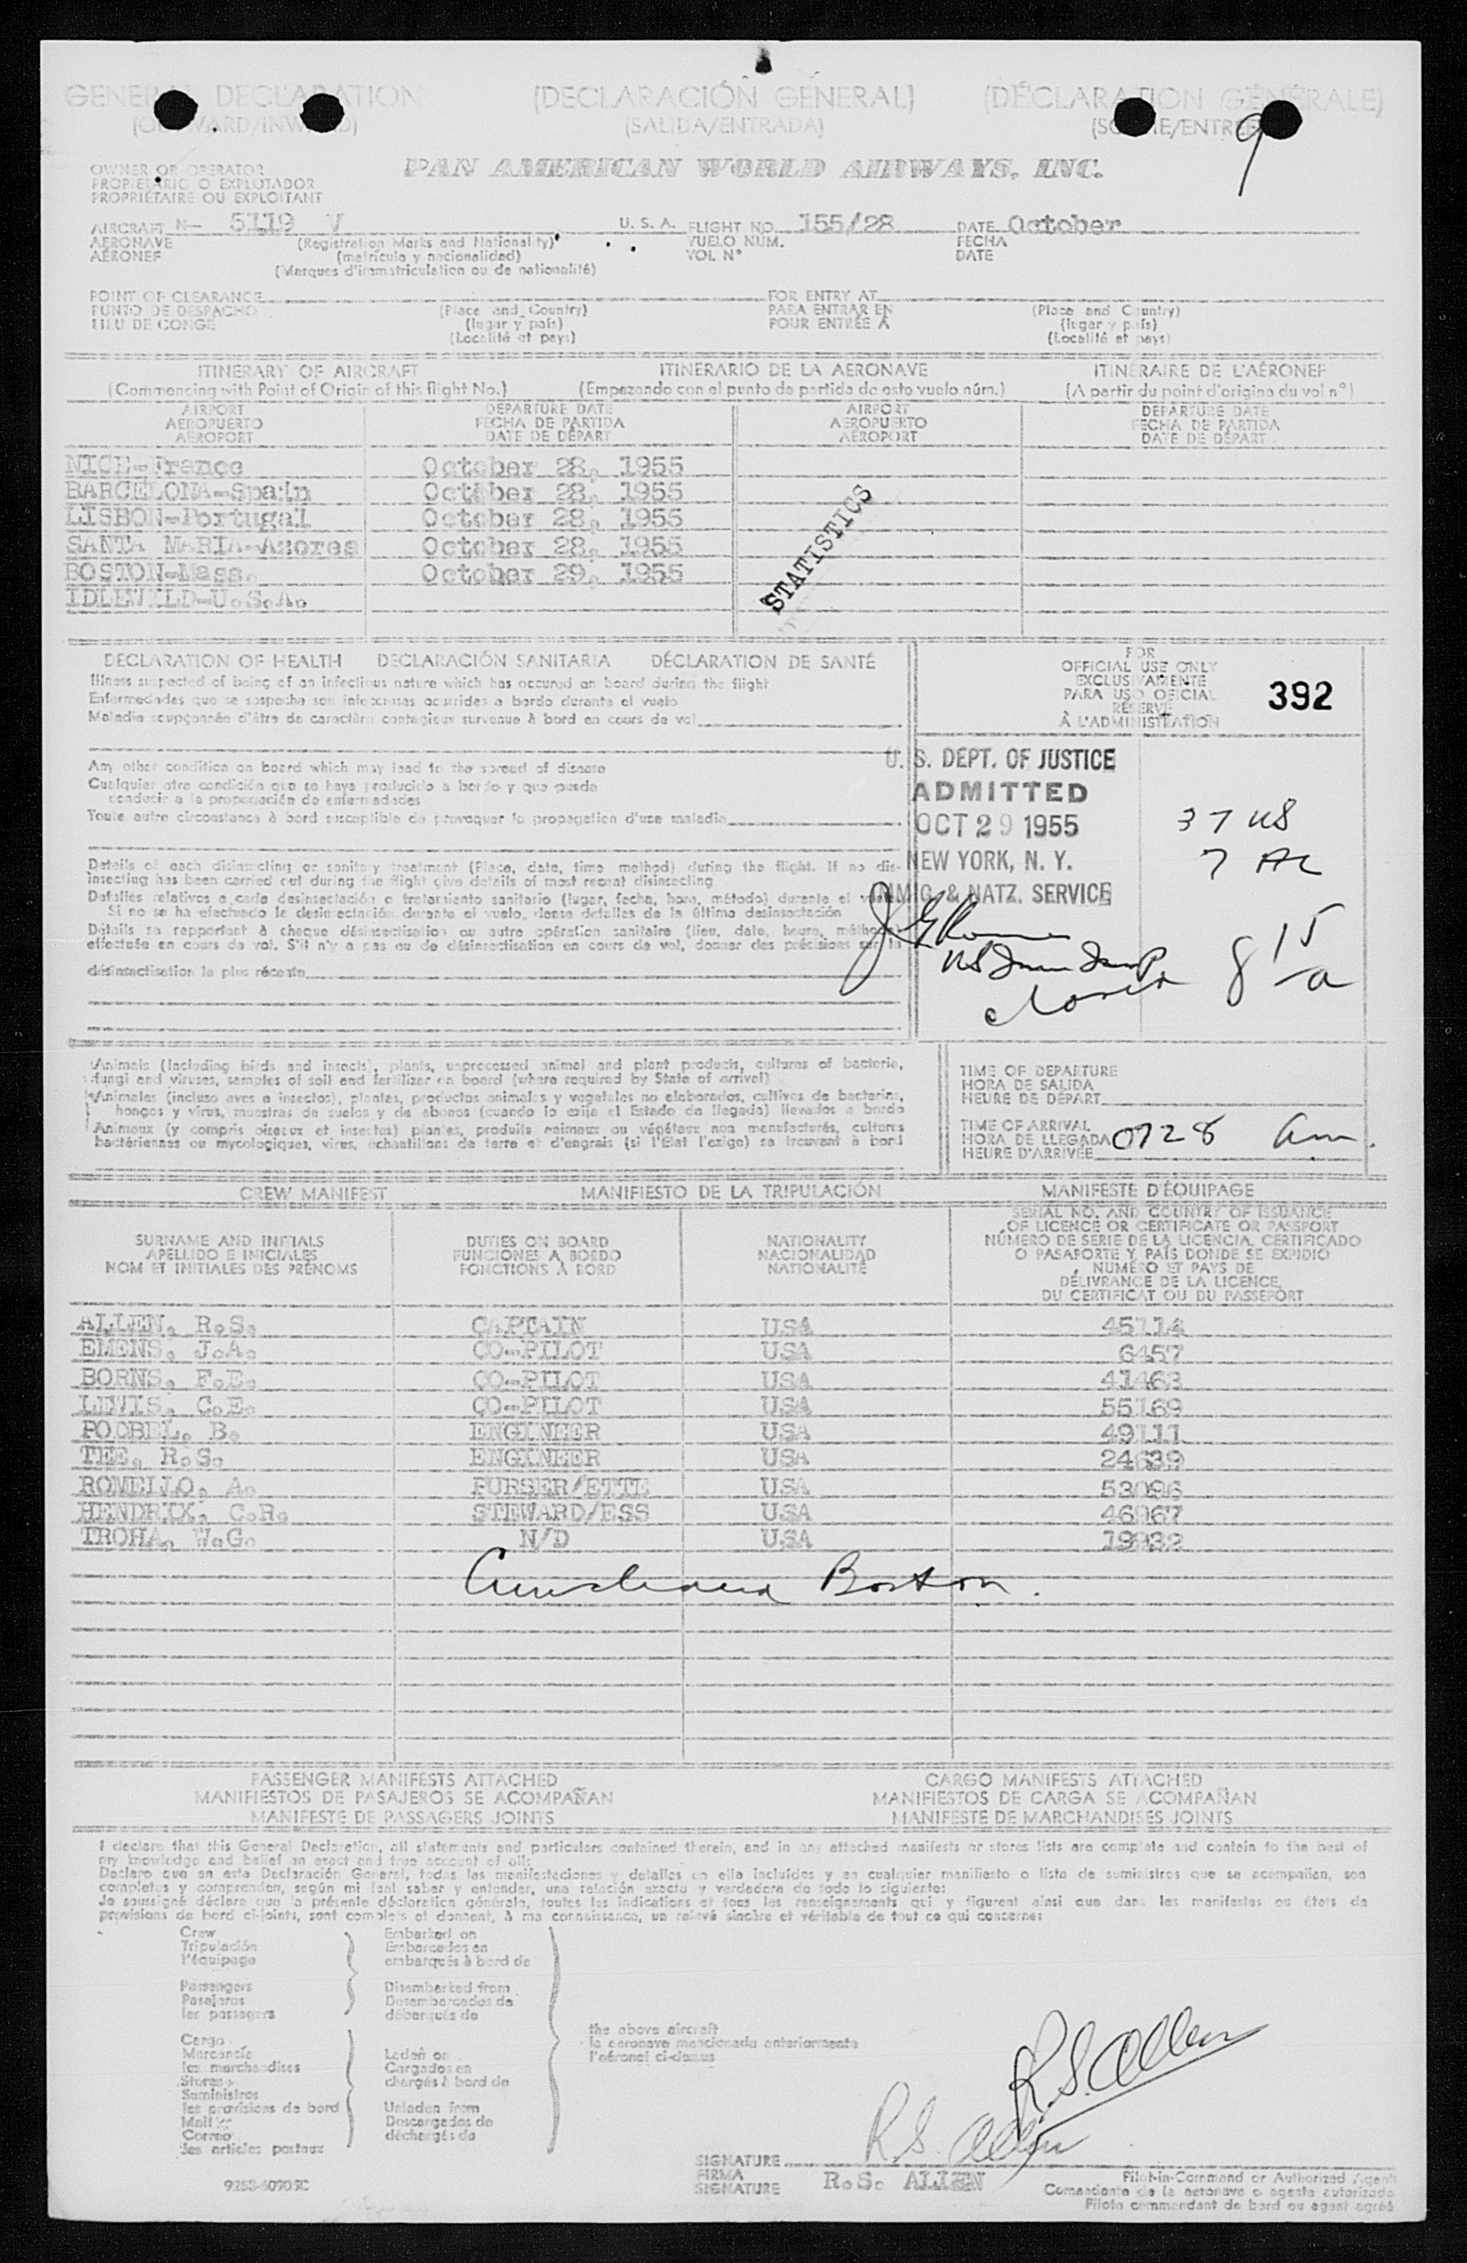 GENERAL DECLARATION (DECLARACIÓN GENERAL) (DÉCLARATION GÉNÉRALE)
(OUTWARD/INWARD) (SALIDA/ENTRADA) (SORTIE/ENTRÉE)
9
OWNER OR OPERATOR
PROPIETARIO O EXPLOTADOR
PROPRIÉTAIRE OU EXPLOITANT
PAN AMERICAN WORLD AIRWAYS, INC.
AIRCRAFT N- 5119 V U. S. A. FLIGHT NO. 155/28 DATE October
AERONAVE (Registration Marks and Nationality) VUELO NÚM. FECHA
AÉRONEF (matrícula y nacionalidad) VOL N° DATE
(Marques d'immatriculation ou de nationalité)
POINT OF CLEARANCE FOR ENTRY AT
PUNTO DE DESPACHO (Place and Country) PARA ENTRAR EN (Place and Country)
LIEU DE CONGÉ (lugar y país) POUR ENTRÉE À (lugar y país)
(Localité et pays) (Localité et pays)
ITINERARY OF AIRCRAFT ITINERARIO DE LA AERONAVE ITINÉRAIRE DE L'AÉRONEF
(Commencing with Point of Origin of this flight No.) (Empezando con el punto de partida de este vuelo núm.) (A partir du point d'origine du vol n°)
AIRPORT DEPARTURE DATE AIRPORT DEPARTURE DATE
AEROPUERTO FECHA DE PARTIDA AEROPUERTO FECHA DE PARTIDA
AÉROPORT DATE DE DÉPART AÉROPORT DATE DE DÉPART
NICE-France October 28, 1955
BARCELONA-Spain October 28, 1955
LISBON-Portugal October 28, 1955
SANTA MARIA-Azores October 28, 1955
BOSTON-Mass. October 29, 1955
IDLEWILD-U.S.A.
STATISTICS
DECLARATION OF HEALTH DECLARACIÓN SANITARIA DÉCLARATION DE SANTÉ
Illness suspected of being of an infectious nature which has occured on board during the flight
Enfermedades que se sospecha son infecciosas ocurridas a bordo durante el vuelo
Maladie soupçonnée d'être de caractère contagieux survenue à bord en cours de vol
Any other condition on board which may lead to the spread of disease
Cualquier otra condición que se haya producido a bordo y que pueda
conducir a la propagación de enfermedades
Toute autre circonstance à bord susceptible de provoquer la propagation d'une maladie
Details of each disinsecting or sanitary treatment (Place, date, time method) during the flight. If no dis-
insecting has been carried out during the flight give details of most recent disinsecting
Detalles relativos a cada desinsectación o tratamiento sanitario (lugar, fecha, hora, método) durante el vuelo
Si no se ha efectuado la desinsectación durante el vuelo, dense detalles de la última desinsectación
Détails se rapportant à chaque désinsectisation ou autre opération sanitaire (lieu, date, heure, méthode)
effectuée en cours de vol. S'il n'y a pas eu de désinsectisation en cours de vol, donner des précisions sur la
désinsectisation la plus récente
FOR
OFFICIAL USE ONLY
EXCLUSIVAMENTE
PARA USO OFICIAL
RÉSERVÉ
À L'ADMINISTRATION
392
U. S. DEPT. OF JUSTICE
ADMITTED
OCT 29 1955
NEW YORK, N. Y.
IMMIG. & NATZ. SERVICE
37 US
7 AL
8 15 a
Animals (including birds and insects), plants, unprocessed animal and plant products, cultures of bacteria,
fungi and viruses, samples of soil and fertilizer on board (where required by State of arrival)
Animales (incluso aves e insectos), plantas, productos animales y vegetales no elaborados, cultivos de bacterias,
hongos y virus, muestras de suelos y de abonos (cuando lo exija el Estado de llegada) llevados a bordo
Animaux (y compris oiseaux et insectes) plantes, produits animaux ou végétaux non manufacturés, cultures
bactériennes ou mycologiques, virus, échantillons de terre et d'engrais (si l'Etat l'exige) se trouvant à bord
TIME OF DEPARTURE
HORA DE SALIDA
HEURE DE DÉPART
TIME OF ARRIVAL
HORA DE LLEGADA 0728 am.
HEURE D'ARRIVÉE
CREW MANIFEST MANIFIESTO DE LA TRIPULACIÓN MANIFESTE D'ÉQUIPAGE
SURNAME AND INITIALS
APELLIDO E INICIALES
NOM ET INITIALES DES PRÉNOMS
DUTIES ON BOARD
FUNCIONES A BORDO
FONCTIONS À BORD
NATIONALITY
NACIONALIDAD
NATIONALITÉ
SERIAL NO. AND COUNTRY OF ISSUANCE
OF LICENCE OR CERTIFICATE OR PASSPORT
NÚMERO DE SERIE DE LA LICENCIA, CERTIFICADO
O PASAPORTE Y PAÍS DONDE SE EXPIDIÓ
NUMÉRO ET PAYS DE
DÉLIVRANCE DE LA LICENCE,
DU CERTIFICAT OU DU PASSEPORT
ALLEN, R.S. CAPTAIN USA 45114
EMENS, J.A. CO-PILOT USA 6457
BORNS, F.E. CO-PILOT USA 41463
LEWIS, C.E. CO-PILOT USA 55169
POOBEL, B. ENGINEER USA 49111
TEE, R.S. ENGINEER USA 24639
ROMELLO, A. PURSER/ETTE USA 53096
HENDRIX, C.R. STEWARD/ESS USA 46967
TROHA, W.G. N/D USA 19932
Boston.
PASSENGER MANIFESTS ATTACHED CARGO MANIFESTS ATTACHED
MANIFIESTOS DE PASAJEROS SE ACOMPAÑAN MANIFIESTOS DE CARGA SE ACOMPAÑAN
MANIFESTE DE PASSAGERS JOINTS MANIFESTE DE MARCHANDISES JOINTS
I declare that this General Declaration, all statements and particulars contained therein, and in any attached manifests or stores lists are complete and contain to the best of
my knowledge and belief an exact and true account of all:
Declaro que en esta Declaración General, todas las manifestaciones y detalles en ella incluídos y en cualquier manifiesto o lista de suministros que se acompañan, son
completos y comprenden, según mi leal saber y entender, una relación exacta y verdadera de todo lo siguiente:
Je soussigné déclare que la présente déclaration générale, toutes les indications et tous les renseignements qui y figurent ainsi que dans les manifestes ou états de
provisions de bord ci-joints, sont complets et donnent, à ma connaissance, un relevé sincère et véritable de tout ce qui concerne:
Crew Embarked on
Tripulación Embarcados en
l'équipage embarqués à bord de
Passengers Disembarked from
Pasajeros Desembarcados de
les passagers débarqués de
the above aircraft
la aeronave mencionada anteriormente
l'aéronef ci-dessus
Cargo
Mercancía Laden on
les marchandises Cargados en
Stores chargés à bord de
Suministros
les provisions de bord Unladen from
Mail Descargados de
Correo déchargés de
les articles postaux
R.S. Allen
R.S. Allen
SIGNATURE
FIRMA R.S. ALLEN
SIGNATURE
Pilot-in-Command or Authorized Agent
Comandante de la aeronave o agente autorizado
Pilote commandant de bord ou agent agréé